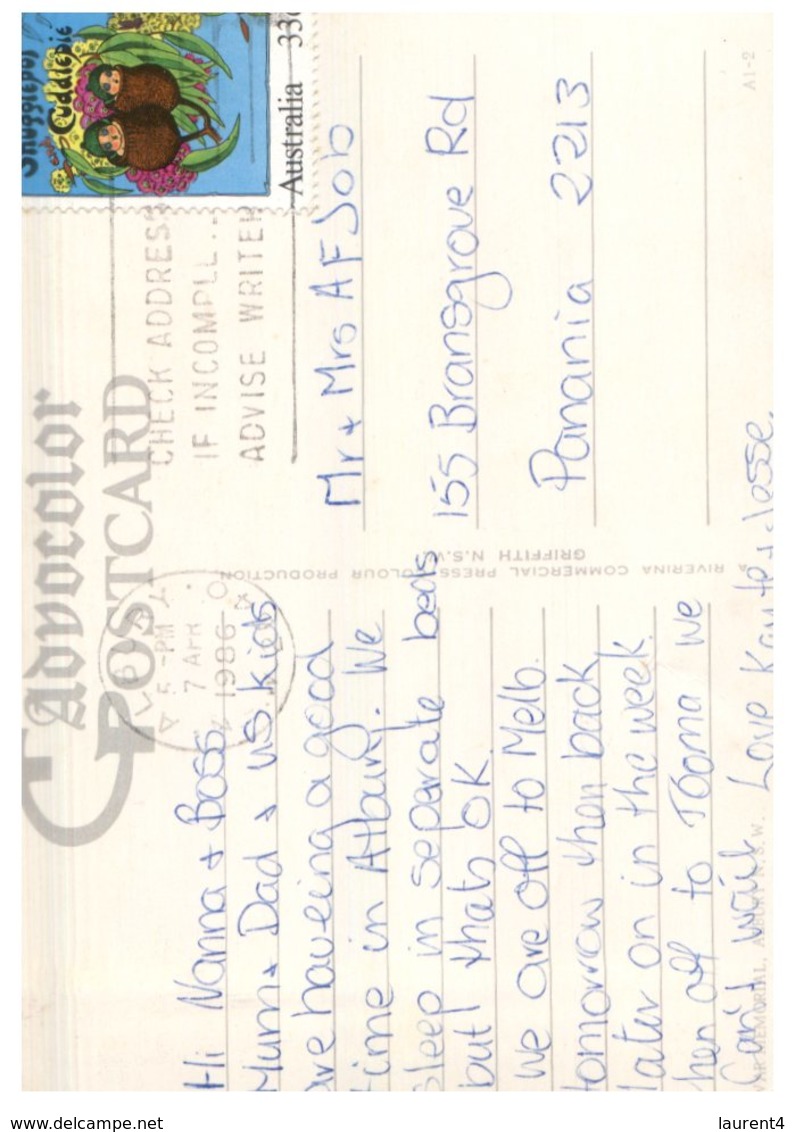 Advocolor
POSTCARD
Snugglepot
Cuddlepie
Australia 33c
CHECK ADDRESS
IF INCOMPLE
ADVISE WRITER
5-PM
7 APR
1986
Hi Nanna + Boss,
Mum + Dad + us kids
are haveing a good
time in Albury. We
sleep in separate beds
but thats OK.
We are off to Melb.
tomorrow then back
later on in the week.
then off to Tooma we
Can't wait Love Kaute + Jesse.
Mr + Mrs A F Job
155 Bransgrove Rd
Panania 2213
A RIVERINA COMMERCIAL PRESS COLOUR PRODUCTION
GRIFFITH N.S.W.
WAR MEMORIAL, ALBURY N.S.W.
A1-2
www.delcampe.net
laurent4